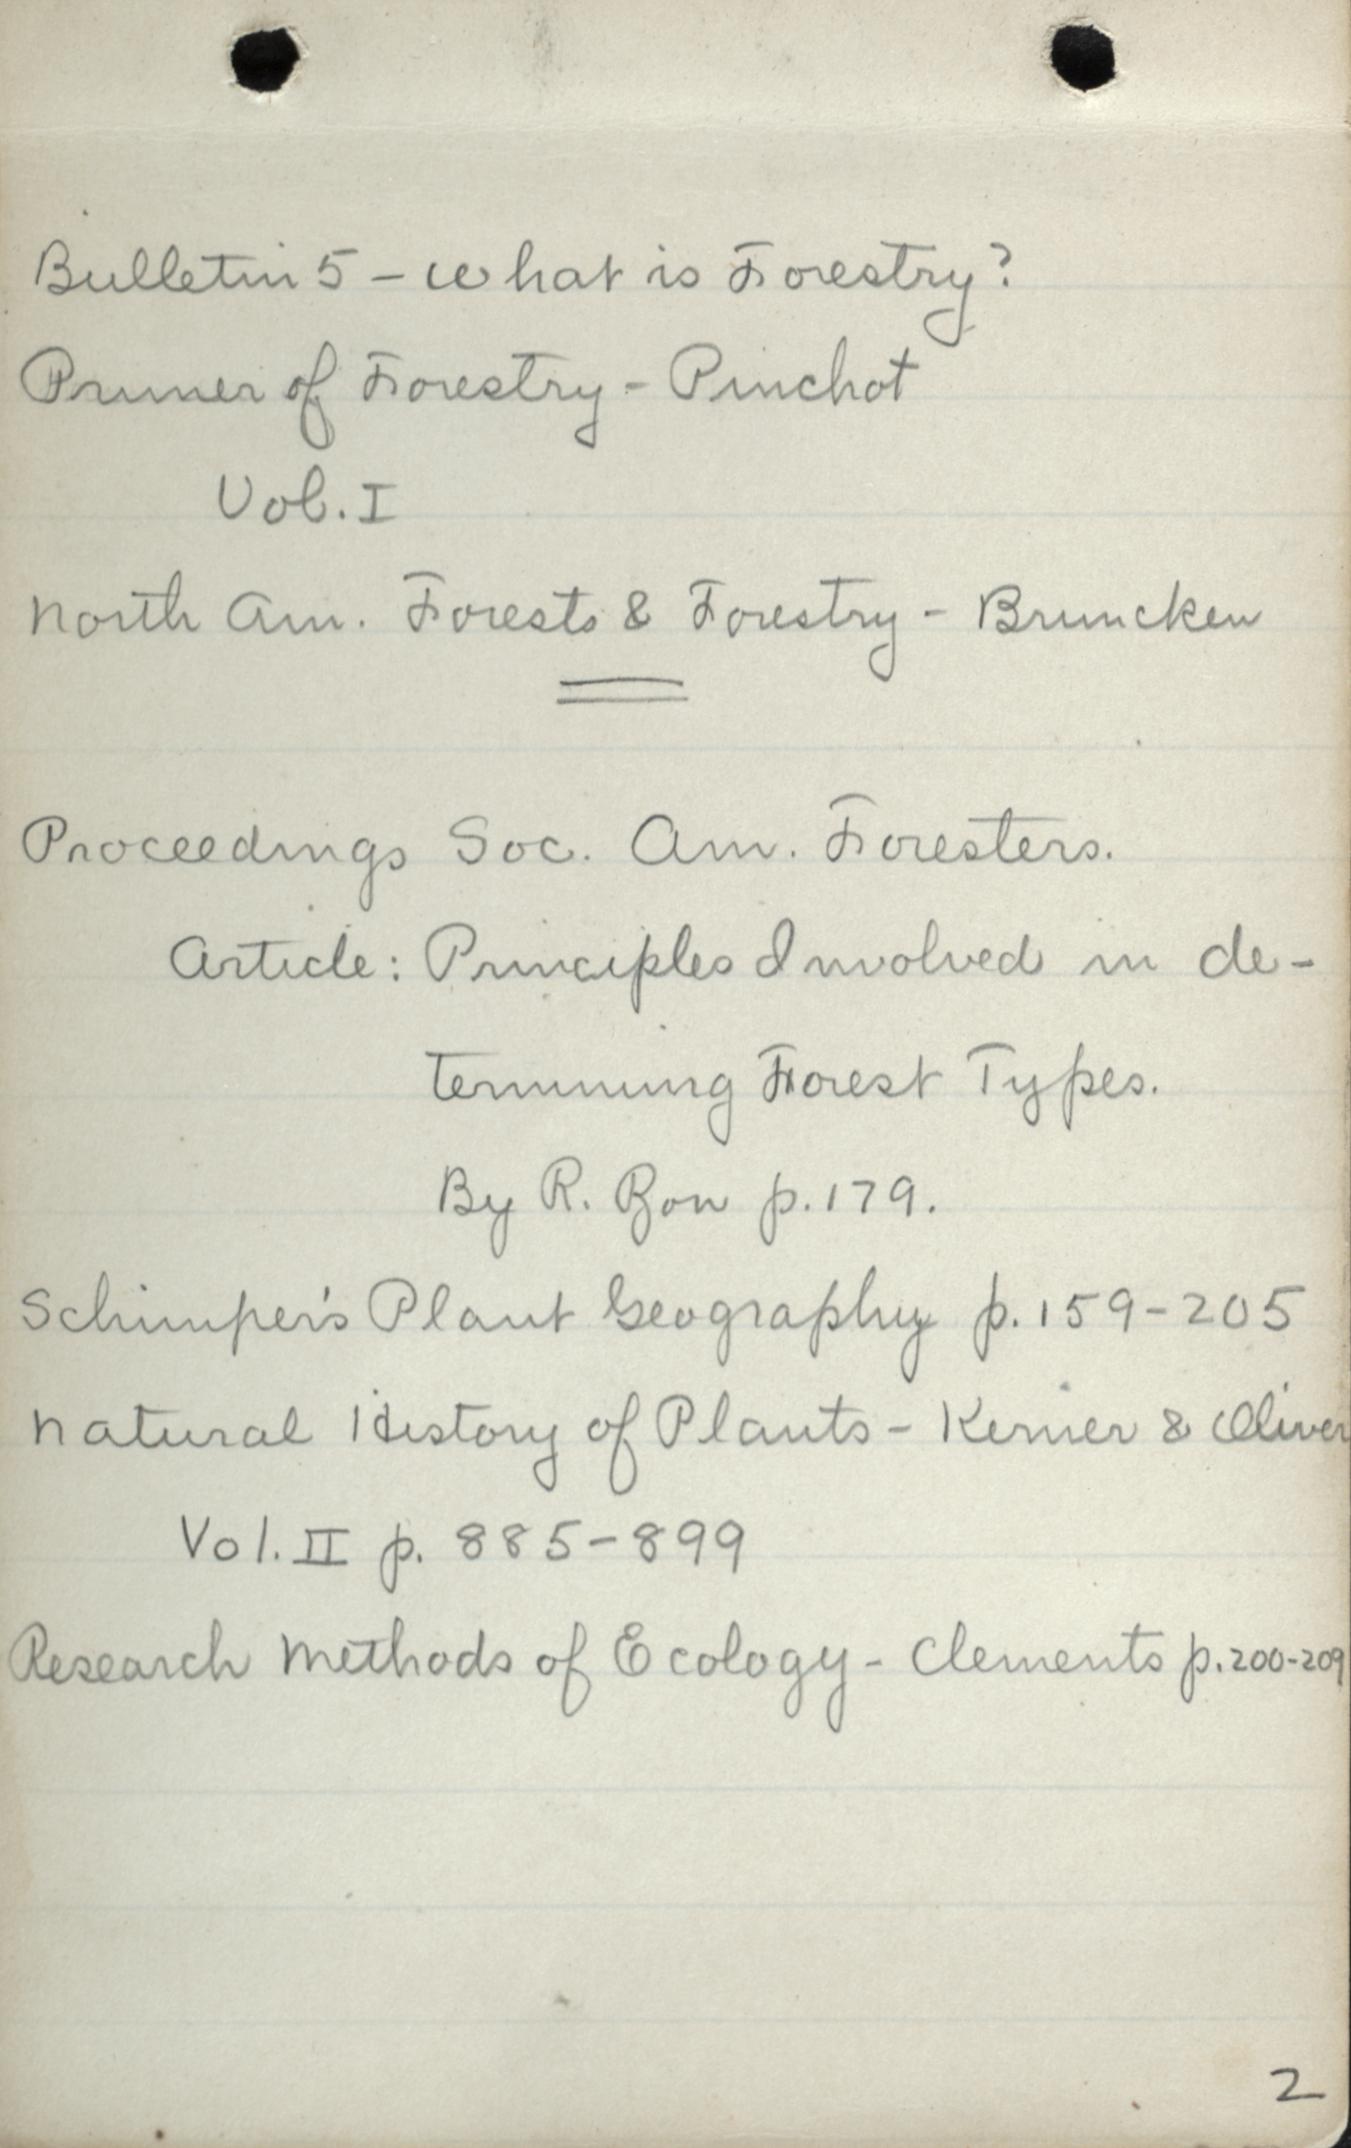 Bulletin 5 – What is Forestry?
Primer of Forestry – Pinchot
Vol. I
North Am. Forests & Forestry – Bruncken
Proceedings Soc. Am. Foresters.
Article: Principles Involved in de-
termining Forest Types.
By R. Zon p. 179.
Schimper's Plant Geography p. 159–205
Natural History of Plants – Kerner & Oliver
Vol. II p. 885–899
Research Methods of Ecology – Clements p. 200-209
2